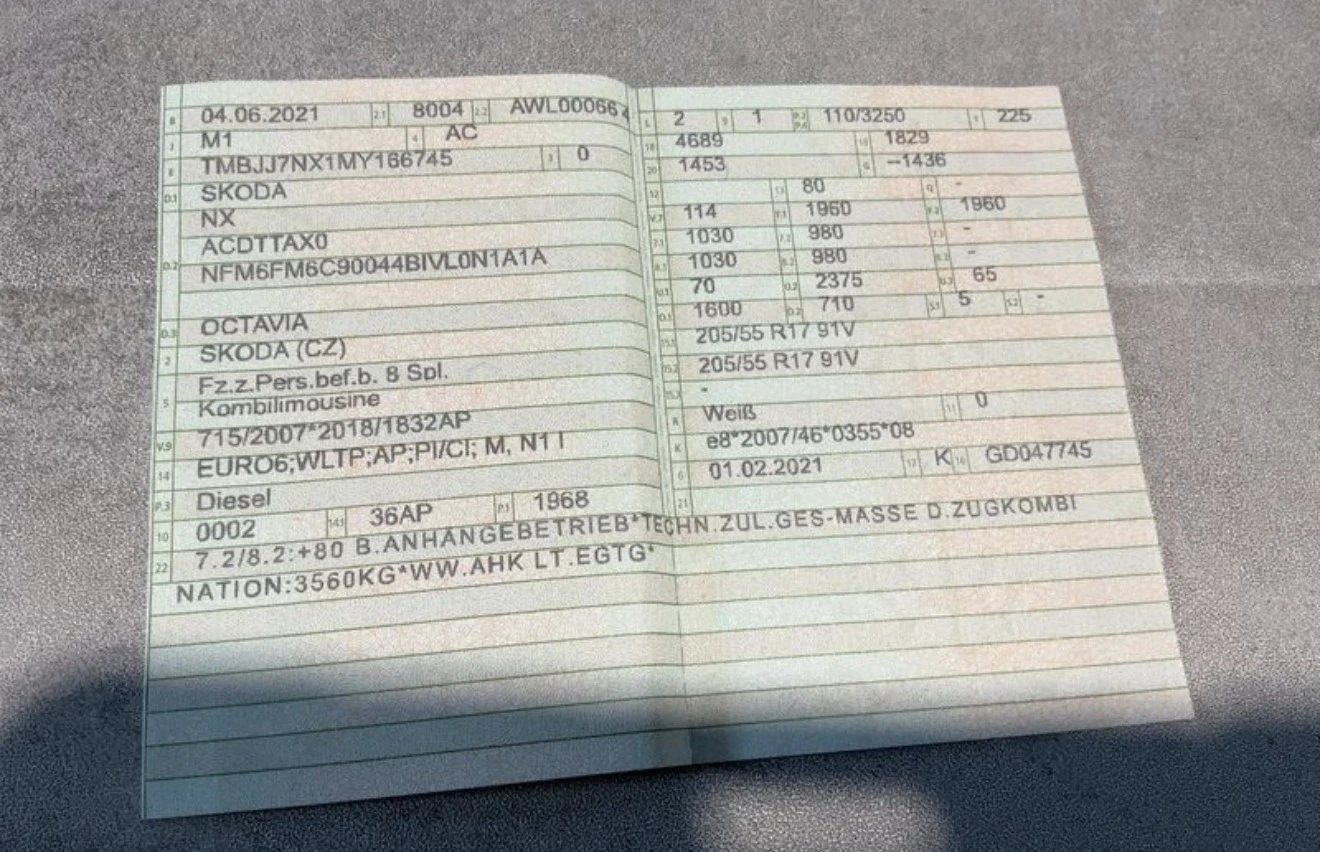 B 04.06.2021 2.1 8004 2.2 AWL000664
J M1 4 AC
E TMBJJ7NX1MY166745 3 0
D.1 SKODA
NX
D.2 ACDTTAX0
NFM6FM6C90044BIVL0N1A1A
D.3 OCTAVIA
2 SKODA (CZ)
5 Fz.z.Pers.bef.b. 8 Spl.
Kombilimousine
V.9 715/2007*2018/1832AP
14 EURO6;WLTP;AP;PI/CI; M, N1 I
P.3 Diesel
10 0002 14.1 36AP P.1 1968
L 2 9 1 P.2 P.4 110/3250 T 225
18 4689 19 1829
20 1453 G –1436
12 13 80 Q -
V.7 114 F.1 1960 F.2 1960
7.1 1030 7.2 980 7.3 -
8.1 1030 8.2 980 8.3 -
U.1 70 U.2 2375 U.3 65
O.1 1600 O.2 710 S.1 5 S.2 -
15.1 205/55 R17 91V
15.2 205/55 R17 91V
15.3 -
R Weiß 11 0
K e8*2007/46*0355*08
6 01.02.2021 17 K 16 GD047745
21
22 7.2/8.2:+80 B.ANHÄNGEBETRIEB*TECHN.ZUL.GES-MASSE D.ZUGKOMBI
NATION:3560KG*WW.AHK LT.EGTG*